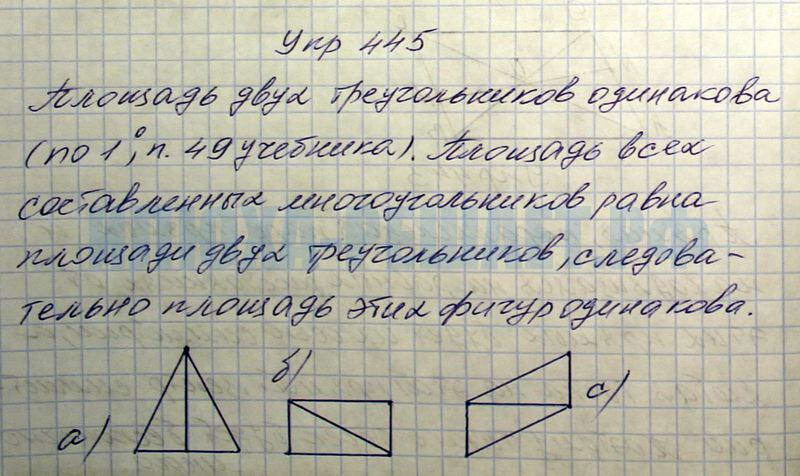 Упр 445
Площадь двух треугольников одинакова
(по 1°, п. 49 учебника). Площадь всех
составленных многоугольников равна
площади двух треугольников, следова-
тельно площадь этих фигур одинакова.
а) б) с)